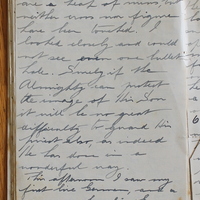 are a heap of
neither cross nor figure
have been touched. I
looked closely and could
not see even one bullet
hole. Surely if the
Almighty can protect
the image of His Son
it will be no great
difficulty to guard His
priest also, as indeed
He has done in a
wonderful way.
This afternoon I saw my
first live German, and a